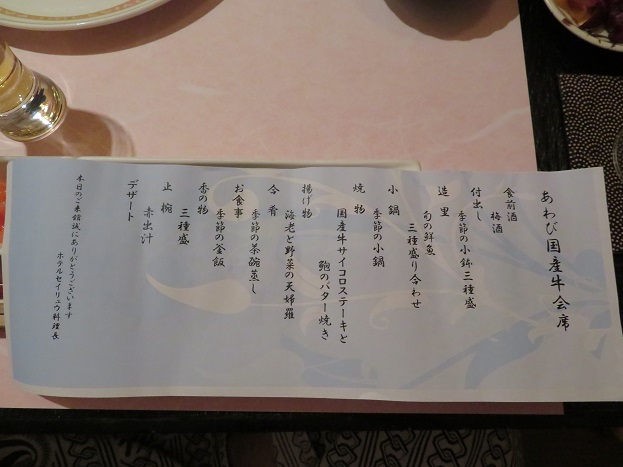 あわび国産牛会席
食前酒
梅酒
付出し
季節の小鉢三種盛
造里
旬の鮮魚
三種盛り合わせ
小鍋
季節の小鍋
焼物
国産牛サイコロステーキと
鮑のバター焼き
揚げ物
海老と野菜の天婦羅
合肴
季節の茶碗蒸し
お食事
季節の釜飯
香の物
三種盛
止椀
赤出汁
デザート
本日のご来館誠にありがとうございます
ホテルセイリュウ料理長